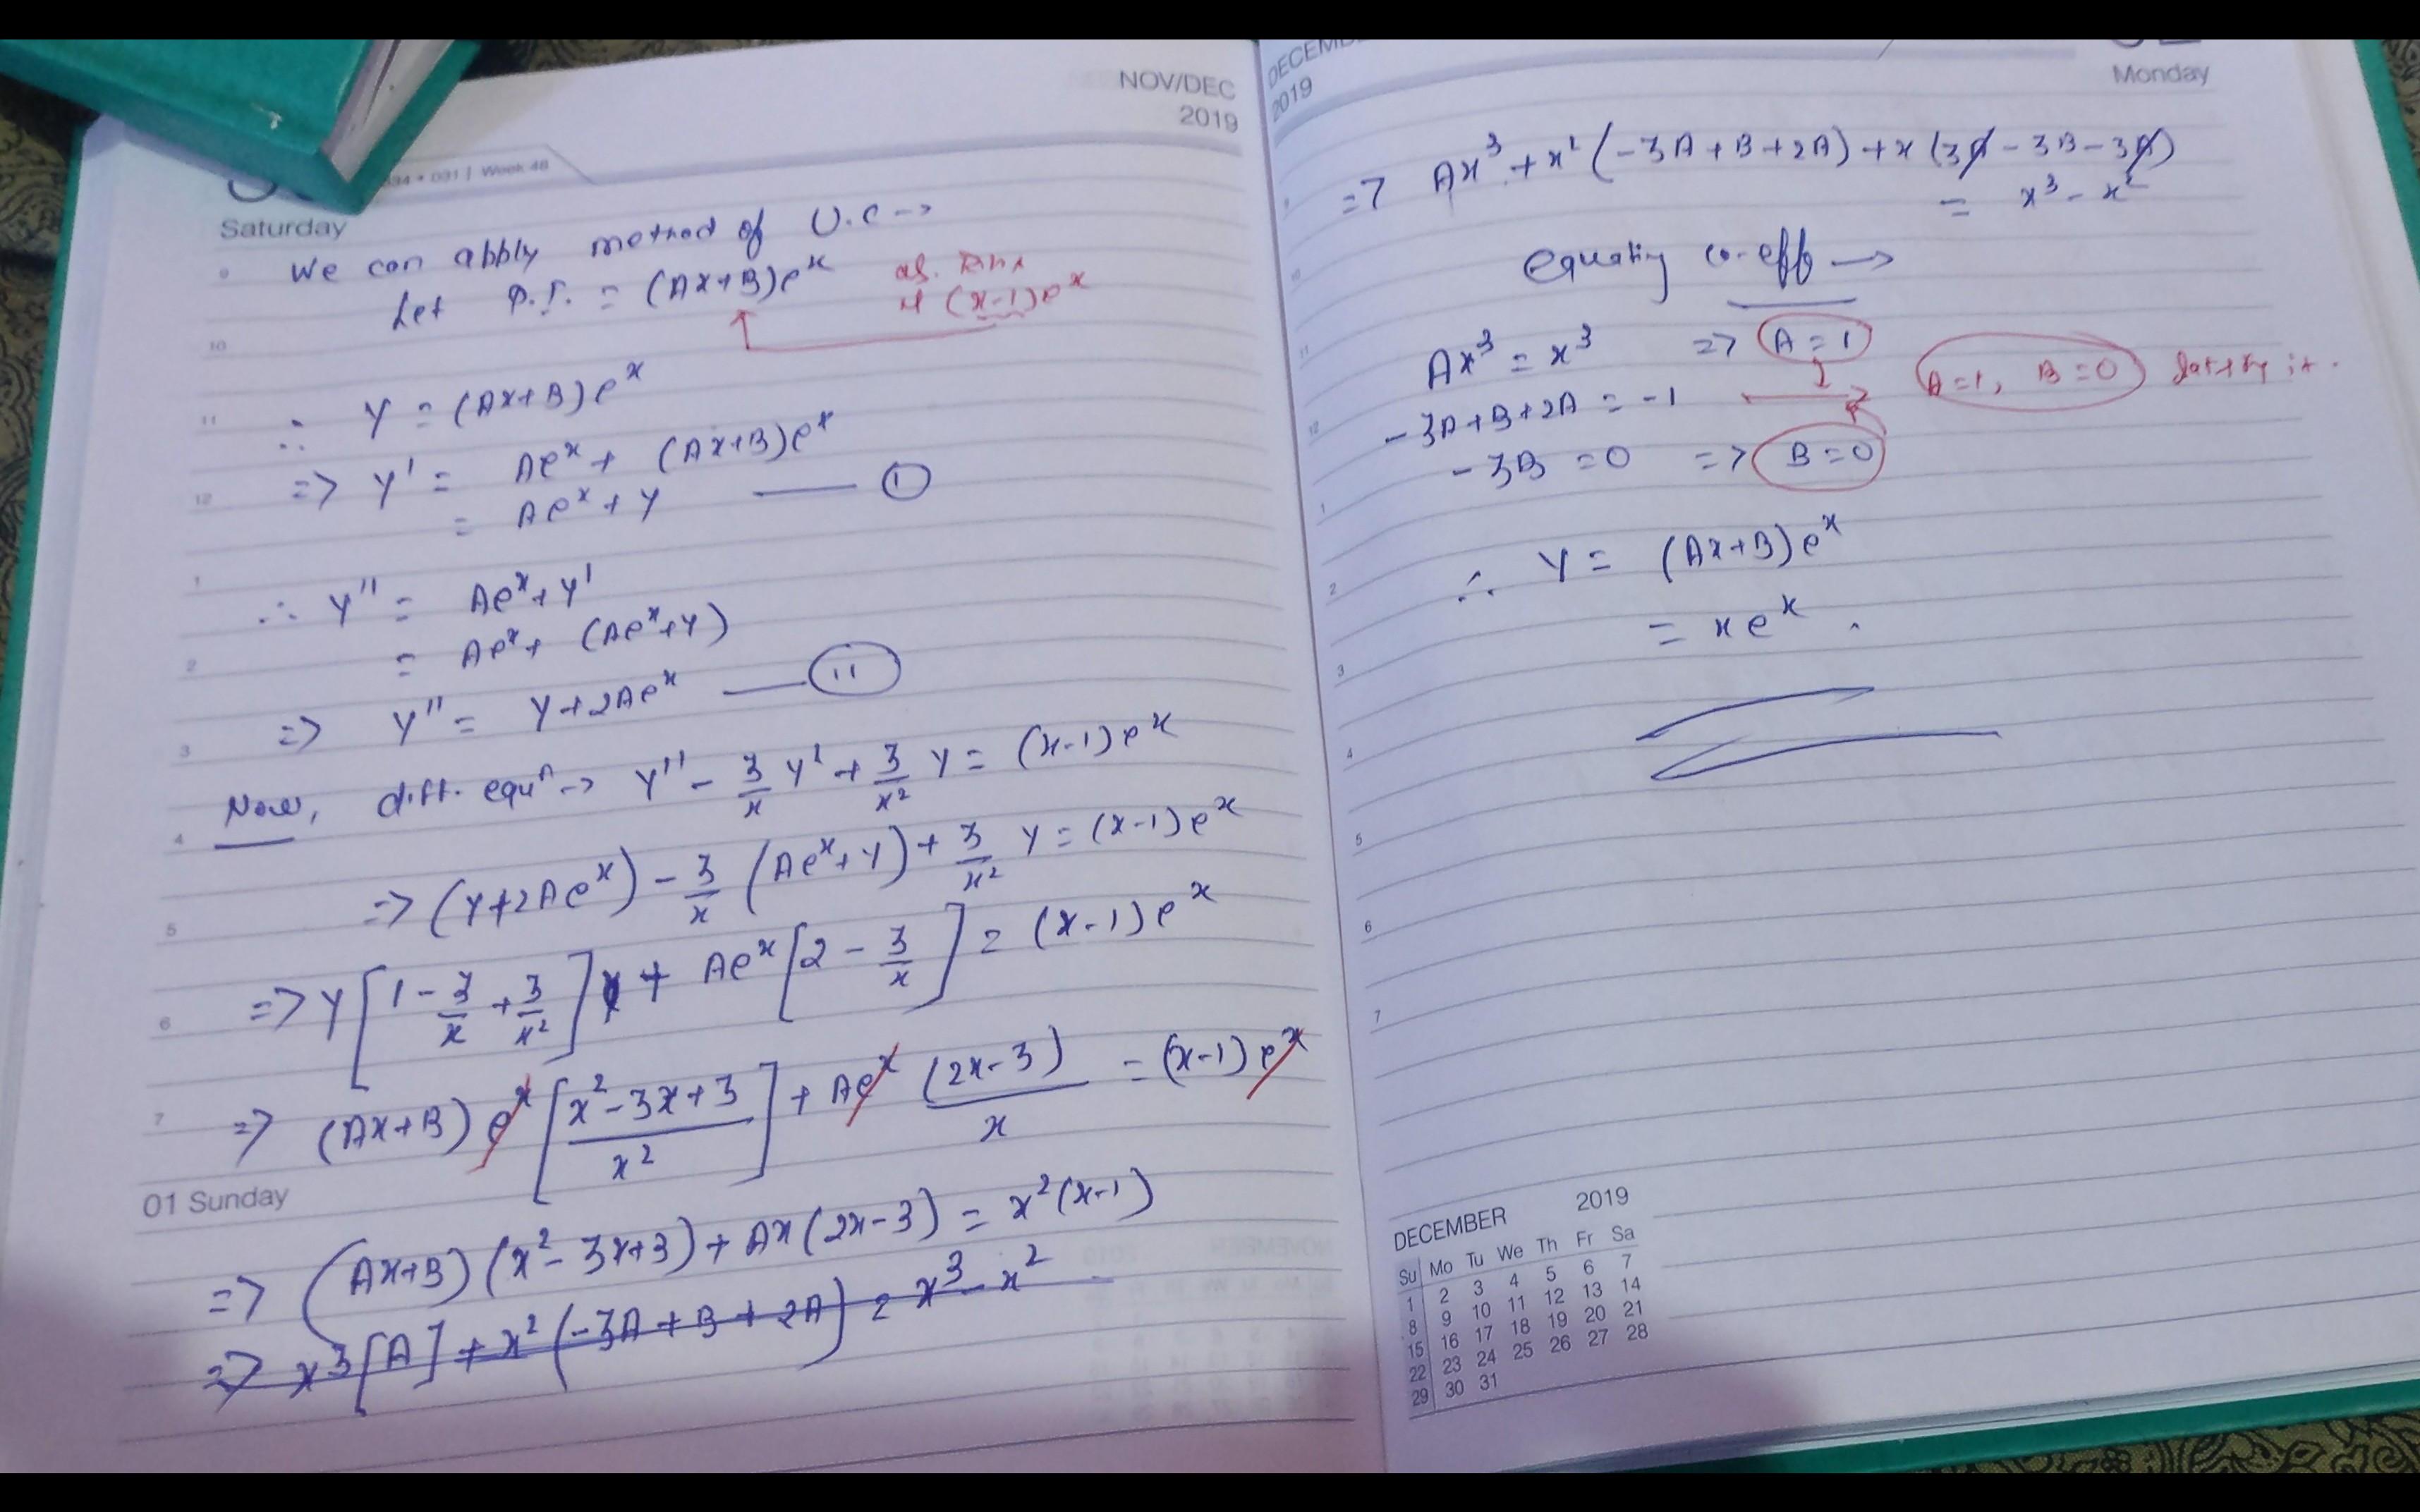 NOV/DEC
2019
34 • 031 | Week 48
Saturday
We can apply method of U.C →
Let P.I. = (Ax+B)e^x as RHS
(x-1)e^x
∴ Y = (Ax+B)e^x
=> Y' = Ae^x + (Ax+B)e^x
= Ae^x + Y —— (i)
∴ Y'' = Ae^x + Y'
= Ae^x + (Ae^x+Y)
=> Y'' = Y+2Ae^x —— (ii)
Now, diff. equn → Y'' - 3/x Y' + 3/x² Y = (x-1)e^x
=> (Y+2Ae^x) - 3/x (Ae^x+Y) + 3/x² Y = (x-1)e^x
=> Y[1 - 3/x + 3/x²] + Ae^x[2 - 3/x] = (x-1)e^x
=> (Ax+B)e^x [(x²-3x+3)/x²] + Ae^x (2x-3)/x = (x-1)e^x
01 Sunday
=> (Ax+B)(x²-3x+3) + Ax(2x-3) = x²(x-1)
=> x³[A] + x²(-3A+B+2A) = x³-x²
DECEM
2019
Monday
=> Ax³ + x²(-3A+B+2A) + x(3A-3B-3A)
= x³-x²
Equating co-eff →
Ax³ = x³ => A=1
-3A+B+2A = -1 → A=1, B=0 satisfy it.
-3B = 0 => B=0
∴ Y = (Ax+B)e^x
= xe^x.
DECEMBER 2019
Su Mo Tu We Th Fr Sa
1 2 3 4 5 6 7
8 9 10 11 12 13 14
15 16 17 18 19 20 21
22 23 24 25 26 27 28
29 30 31